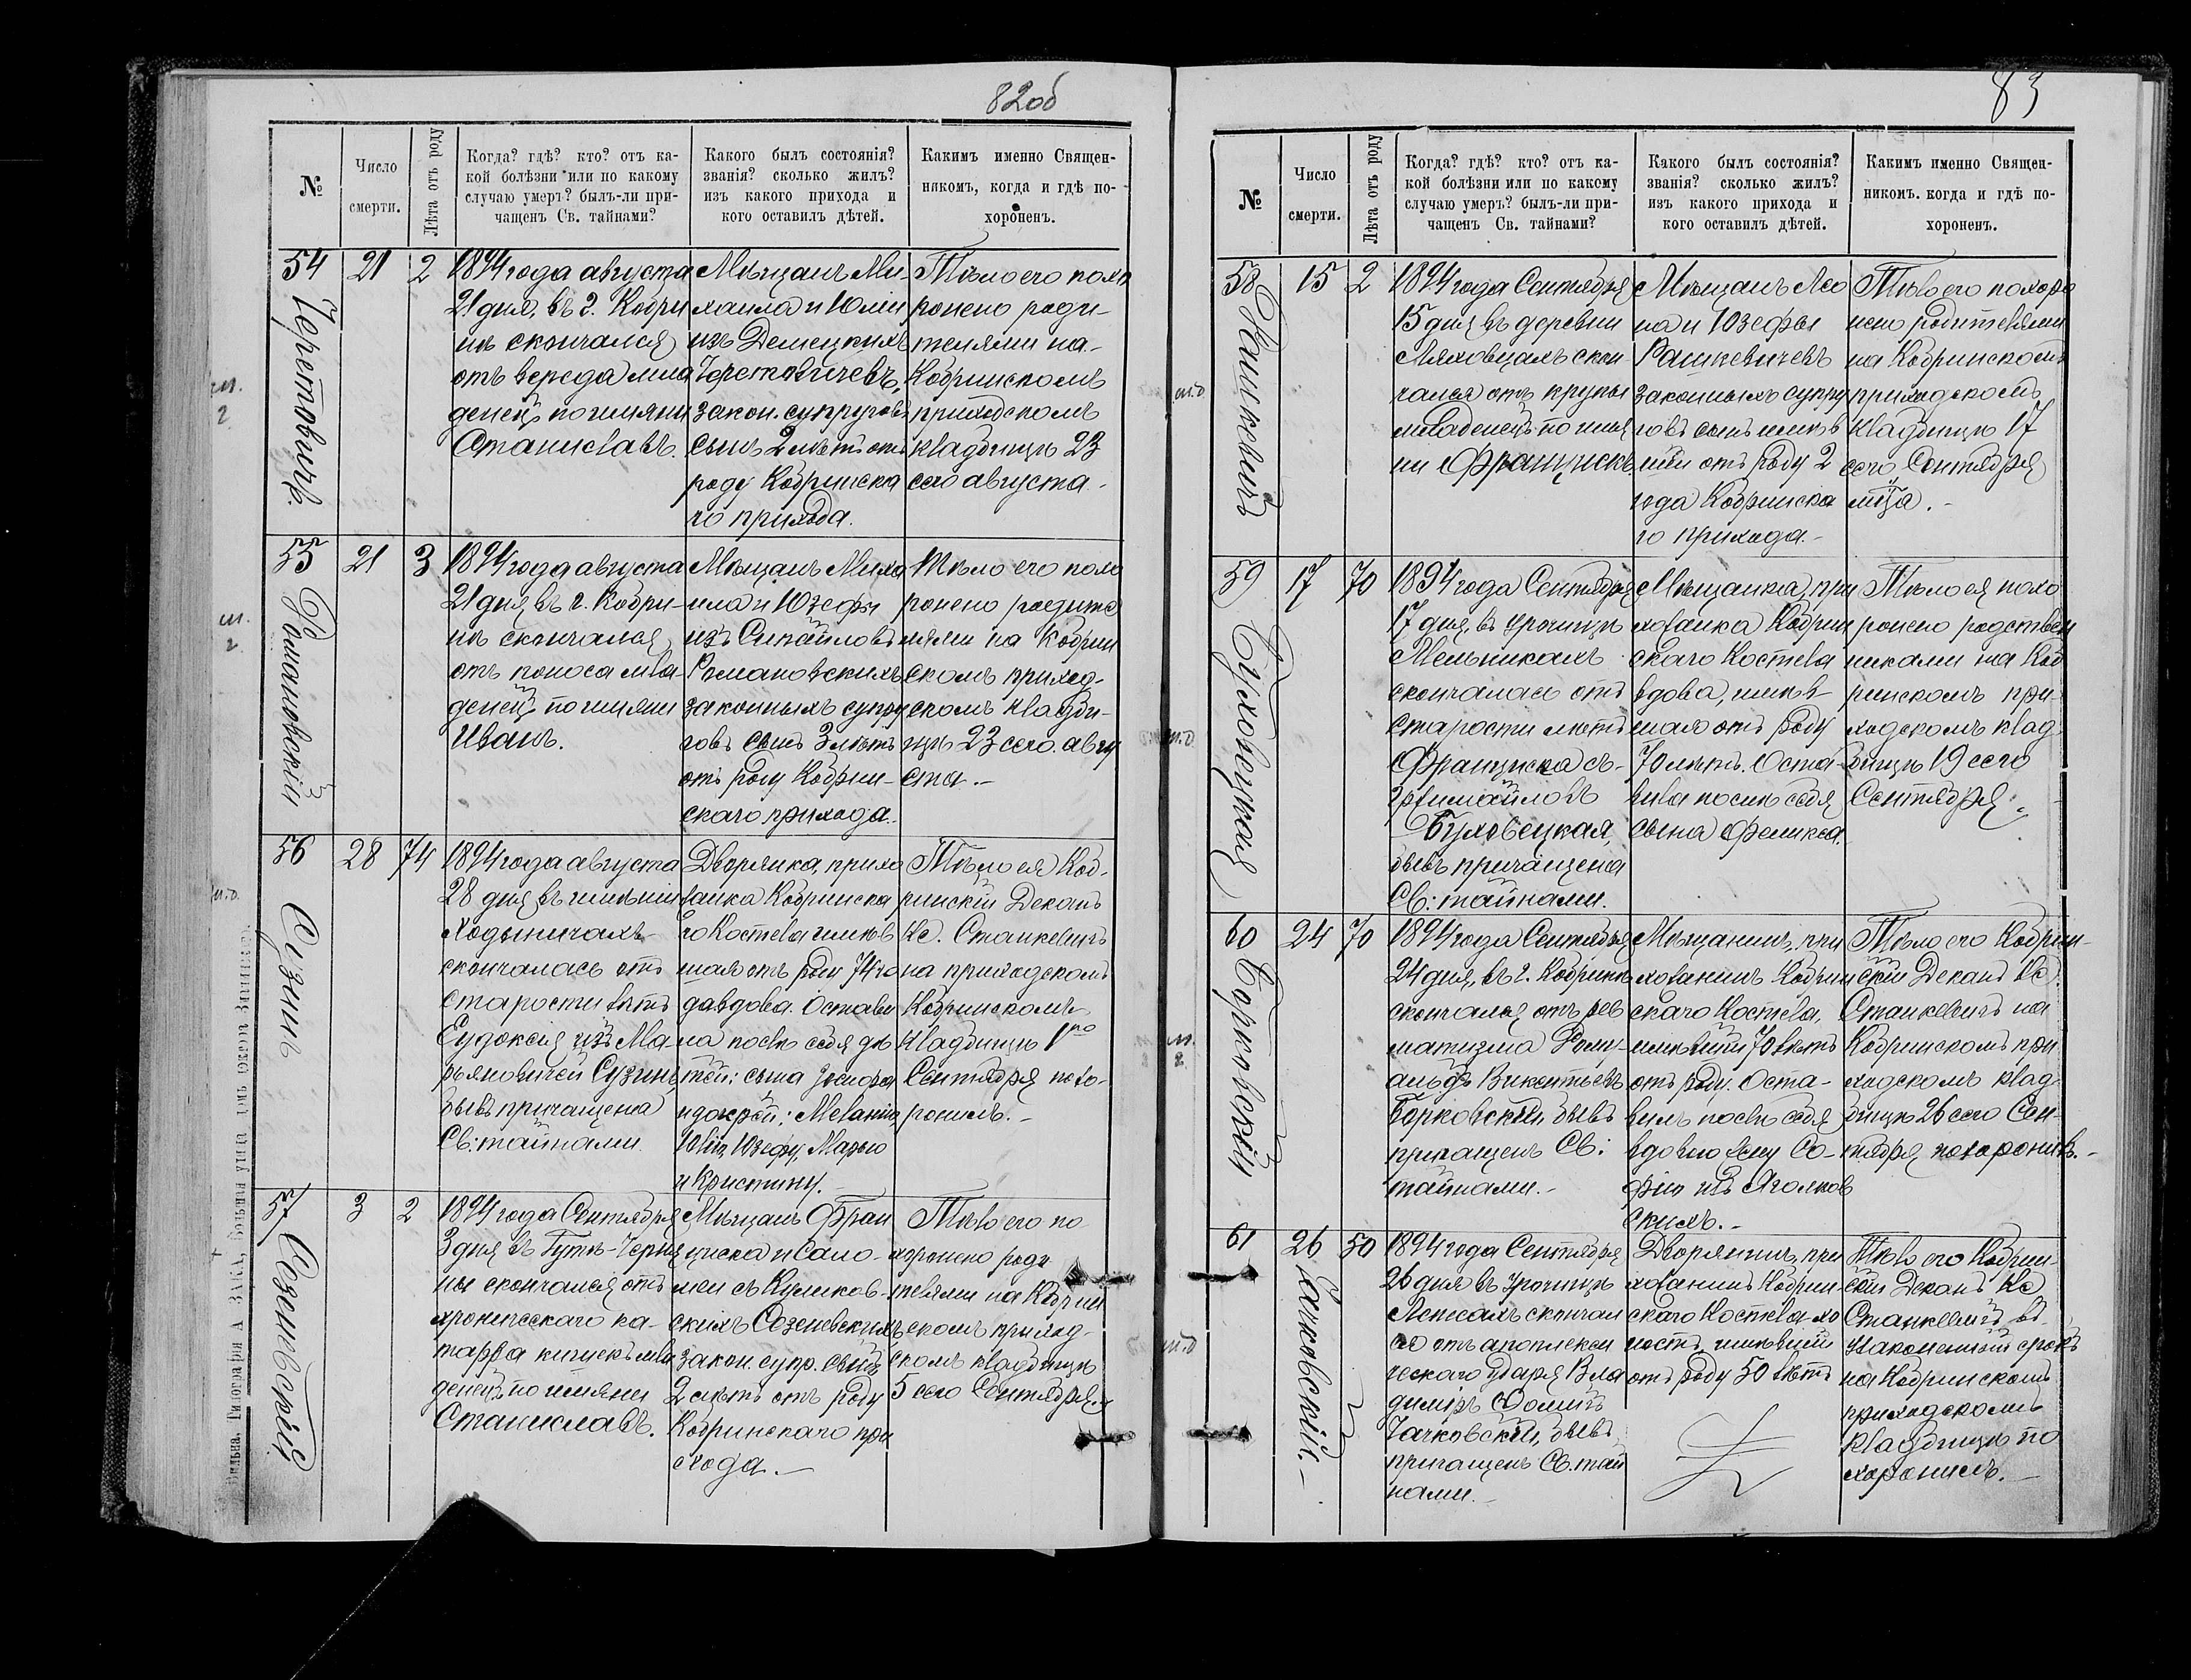 82об
№
Число
смерти.
Лѣта отъ роду
Когда? гдѣ? кто? отъ ка-
кой болѣзни или по какому
случаю умеръ? былъ-ли при-
чащенъ Св. тайнами?
Какого былъ состоянія?
званія? сколько жилъ?
изъ какого прихода и
кого оставилъ дѣтей.
Какимъ именно Священ-
никомъ, когда и гдѣ по-
хороненъ.
54
Черетовичъ
21
2
1894 года августа
21 дня, въ г. Кобри
нѣ скончался
отъ вереда мла
денецъ по имяни
Станиславъ.
Мѣщанъ Ми
хаила и Юлiи
изъ Демецкихъ
Черетовичевъ,
закон. супруговъ
сынъ 2 лѣтъ отъ
роду Кобринска
го прихода.
Тѣло его похо
ронено роди-
телями на
Кобринскомъ
приходскомъ
кладбищѣ 23
сего августа.
55
Романовскій
21
3
1894 года августа
21 дня въ г. Кобри-
нѣ скончался
отъ поноса мла-
денецъ по имяни
Иванъ.
Мѣщанъ Миха
ила и Юзефы
изъ
Романовскихъ
законныхъ супру
говъ сынъ 3 лѣтъ
отъ роду Кобрин-
скаго прихода.
Тѣло его похо
ронено родите
лями на Кобрин
скомъ приход-
скомъ кладби-
щѣ 23 сего авгу
ста.-
56
Сузинъ
28
74
1894 года августа
28 дня въ имѣніи
Ходыничахъ
скончалась отъ
старости лѣтъ
Еудоксія изъ Ма
рьяновичей Сузинъ
бывъ причащена
Св: тайнами.
Дворянка, прихо
жанка Кобринска
го Костела имѣв
шая отъ роду 74 го
да вдова. Остави
ла послѣ себя дѣ
тей: сына
и дочерей: Меланію,
Юлію, Юзефу, Марью
и Кристину.
Тѣло ея Коб-
ринскій Деканъ
Кс. Станкевичъ
на приходскомъ
Кобринскомъ
кладбищѣ 1го
Сентября похо-
ронилъ.-
57
Созеневскій
3
2
1894 года Сентября
3 дня въ Гутѣ-Черня
ны скончался отъ
хроническаго ка-
тарра кишекъ мла
денецъ по имяни
Станиславъ.
Мѣщанъ Фран
циска и Сало-
меи съ Куликов-
скихъ Созеневскихъ
закон. супр. сынъ
2 лѣтъ отъ роду
Кобринскаго при
хода.-
Тѣло его по
хоронено роди
телями на Кобрин
скомъ приход-
скомъ кладбищѣ
5 сего Сентября.-
Вильна, Типографія А. ЗАКА, Большая улица
83
№
Число
смерти.
Лѣта отъ роду
Когда? гдѣ? кто? отъ ка-
кой болѣзни или по какому
случаю умеръ? былъ-ли при-
чащенъ Св. тайнами?
Какого былъ состоянія?
званія? сколько жилъ?
изъ какого прихода и
кого оставилъ дѣтей.
Какимъ именно Священ-
никомъ. когда и гдѣ по-
хороненъ.
58
Рашкевичъ
15
2
1894 года Сентября
15 дня въ деревни
Ляховцахъ скон
чался отъ крупы
младенецъ по имя
ни Францискъ
Мѣщанъ Лео
на и Юзефы
Рашкевичевъ
законныхъ супру
говъ сынъ имѣв
шiй отъ роду 2
года Кобринска
го прихода.-
Тѣло его похоро
нено родителями
на Кобринскомъ
приходскомъ
кладбищѣ 17
сего Сентября
мца.-
59
Буховецкая
17
70
1894 года Сентября
17 дня, въ урочищѣ
Мельникахъ
скончалась отъ
старости лѣтъ
Франциска съ
Буховецкая,
бывъ причащена
Св: тайнами.
Мѣщанка, при
хожанка Кобрин
скаго Костела
вдова, имѣв-
шая отъ роду
70 лѣтъ. Оста-
вила послѣ себя
сына Феликса.
Тѣло ея похо
ронено родствен
никами на Коб
ринскомъ при-
ходскомъ клад
бищѣ 19 сего
Сентября.-
60
Борковскій
24
70
1894 года Сентября
24 дня, въ г. Кобринѣ
скончался отъ рев
матизма Рому-
альдъ Викентьевъ
Борковскій, бывъ
причащенъ Св:
тайнами.-
Мѣщанинъ, при
хожанинъ Кобрин
скаго Костела,
имѣвшій 70 лѣтъ
отъ роду. Оста-
вилъ послѣ себя
вдовою жену Со-
фію изъ Яголков
скихъ.-
Тѣло его Кобрин-
скій Деканъ Кс.
Станкевичъ на
Кобринскомъ при
ходскомъ клад
бищѣ 26 сего Сен-
тября похоронилъ.-
61
Чачковскій.-
26
50
1894 года Сентября
26 дня въ урочищѣ
Лепесахъ скончал
ся отъ апоплекси
ческаго удара Вла
диміръ
Чачковскій, бывъ
причащенъ Св. тай
нами.-
Дворянинъ, при
хожанинъ Кобрин-
скаго Костела хо
лостъ, имѣвшій
отъ роду 50 лѣтъ
Тѣло его Кобрин-
скій Деканъ Кс
Станкевичъ въ
узаконенный срокъ
на Кобринскомъ
приходскомъ
кладбищѣ по
хоронилъ.-